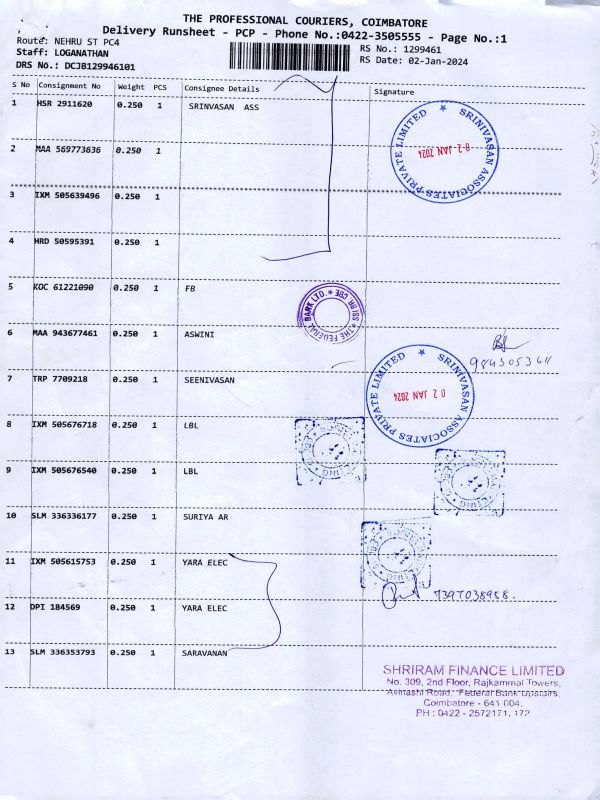 THE PROFESSIONAL COURIERS, COIMBATORE
Delivery Runsheet - PCP - Phone No.:0422-3505555 - Page No.:1
Route: NEHRU ST PC4
Staff: LOGANATHAN
DRS No.: DCJB129946101
RS No.: 1299461
RS Date: 02-Jan-2024
S No Consignment No Weight PCS Consignee Details Signature
1 HSR 2911620 0.250 1 SRINVASAN ASS
SRINIVASAN ASSOCIATES PRIVATE LIMITED ★
02-JAN 2024
2 MAA 569773636 0.250 1
3 IXM 505639496 0.250 1
4 HRD 50595391 0.250 1
5 KOC 61221090 0.250 1 FB
★ THE FEDERAL BANK LTD. ★
6 MAA 943677461 0.250 1 ASWINI
7 TRP 7709218 0.250 1 SEENIVASAN
SRINIVASAN ASSOCIATES PRIVATE LIMITED ★
02 JAN 2024
8 IXM 505676718 0.250 1 LBL
9 IXM 505676540 0.250 1 LBL
10 SLM 336336177 0.250 1 SURIYA AR
11 IXM 505615753 0.250 1 YARA ELEC
12 DPI 184569 0.250 1 YARA ELEC
7397038958.
13 SLM 336353793 0.250 1 SARAVANAN
SHRIRAM FINANCE LIMITED
No. 309, 2nd Floor, Rajkammal Towers,
Avinashi Road, Federal Bank Upstairs,
Coimbatore - 641 004.
PH : 0422 - 2572171, 172